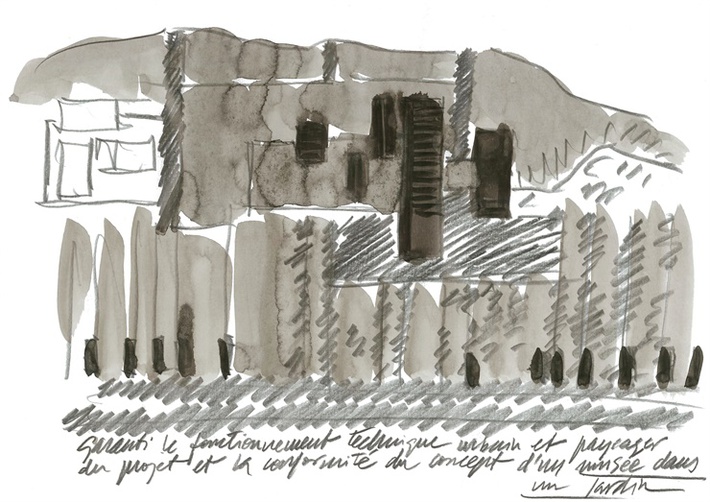 Garanti le fonctionnement technique urbain et paysager
du projet et la conformité du concept d'un musée dans
un Jardin